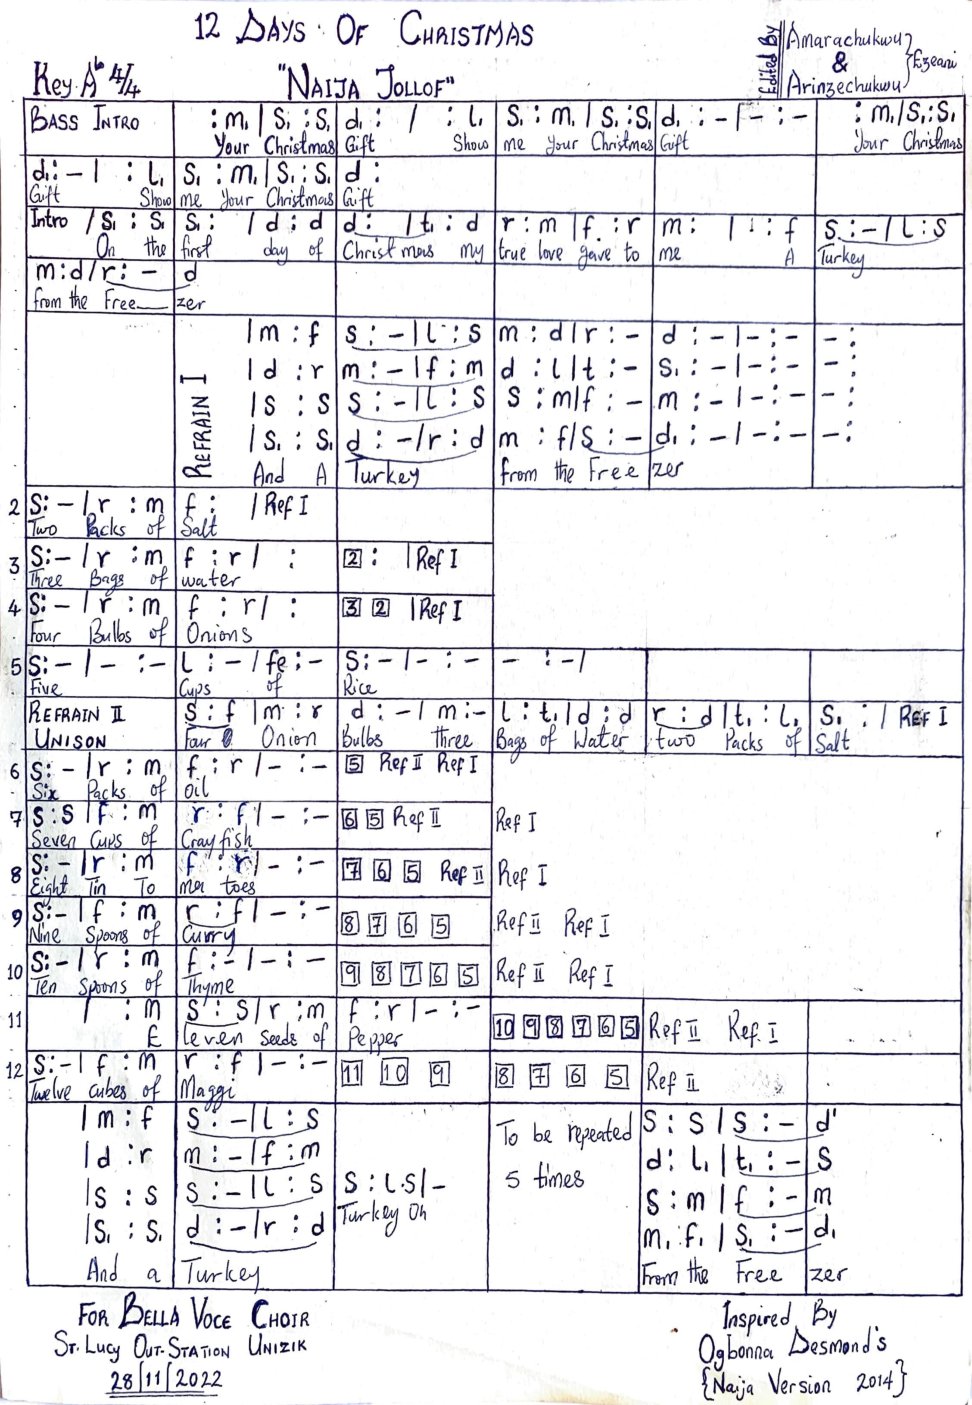 12 DAYS OF CHRISTMAS
"NAIJA JOLLOF"
Key A♭ 4/4
Edited By Amarachukwu & Arinzechukwu } Ezeani
BASS INTRO :m₁|s₁:s₁ d:| :l₁ s₁:m₁|s₁:s₁ d:-|-:- :m₁|s₁:s₁
Your Christmas Gift Show me Your Christmas Gift Your Christmas
d:-| :l₁ s₁:m₁|s₁:s₁ d:
Gift Show me Your Christmas Gift
Intro |s₁:s₁ s₁: |d:d d: |t₁:d r:m|f:r m: | :f s:-|l:s
On the first day of Christmas my true love gave to me A Turkey
m:d|r:- d
from the Free zer
REFRAIN I
|m:f s:-|l:s m:d|r:- d:-|-:- -:
|d:r m:-|f:m d:l|t:- s₁:-|-:- -:
|s:s s:-|l:s s:m|f:- m:-|-:- -:
|s₁:s₁ d:-|r:d m:f|s:- d₁:-|-:- -:
And A Turkey from the Free zer
2 s:-|r:m f: |Ref I
Two Packs of Salt
3 s:-|r:m f:r| : 2: |Ref I
Three Bags of water
4 s:-|r:m f:r| : 3 2 |Ref I
Four Bulbs of Onions
5 s:-|-:- l:-|fe:- s:-|-:- -:-|
Five Cups of Rice
REFRAIN II s:f|m:r d:-|m:- l:t₁|d:d r:d|t₁:l₁ s₁: | REF I
UNISON Four Onion Bulbs three Bags of Water two Packs of Salt
6 s:-|r:m f:r|-:- 5 Ref II Ref I
Six Packs of Oil
7 s:s|f:m r:f|-:- 6 5 Ref II Ref I
Seven Cups of Crayfish
8 s:-|r:m f:r|-:- 7 6 5 Ref II Ref I
Eight Tin To ma toes
9 s:-|f:m r:f|-:- 8 7 6 5 Ref II Ref I
Nine Spoons of Curry
10 s:-|r:m f:-|-:- 9 8 7 6 5 Ref II Ref I
Ten Spoons of Thyme
11 | :m s:s|r:m f:r|-:- 10 9 8 7 6 5 Ref II Ref I
E leven Seeds of Pepper
12 s:-|f:m r:f|-:- 11 10 9 8 7 6 5 Ref II
Twelve cubes of Maggi
|m:f s:-|l:s
|d:r m:-|f:m
|s:s s:-|l:s
|s₁:s₁ d:-|r:d
And a Turkey
s:l.s|-
Turkey Oh
To be repeated
5 times
s:s|s:- d'
d:l₁|t₁:- s
s:m|f:- m
m₁f₁|s₁:- d₁
From the Free zer
FOR BELLA VOCE CHOIR
ST. LUCY OUT-STATION UNIZIK
28|11|2022
Inspired By
Ogbonna Desmond's
{Naija Version 2014}